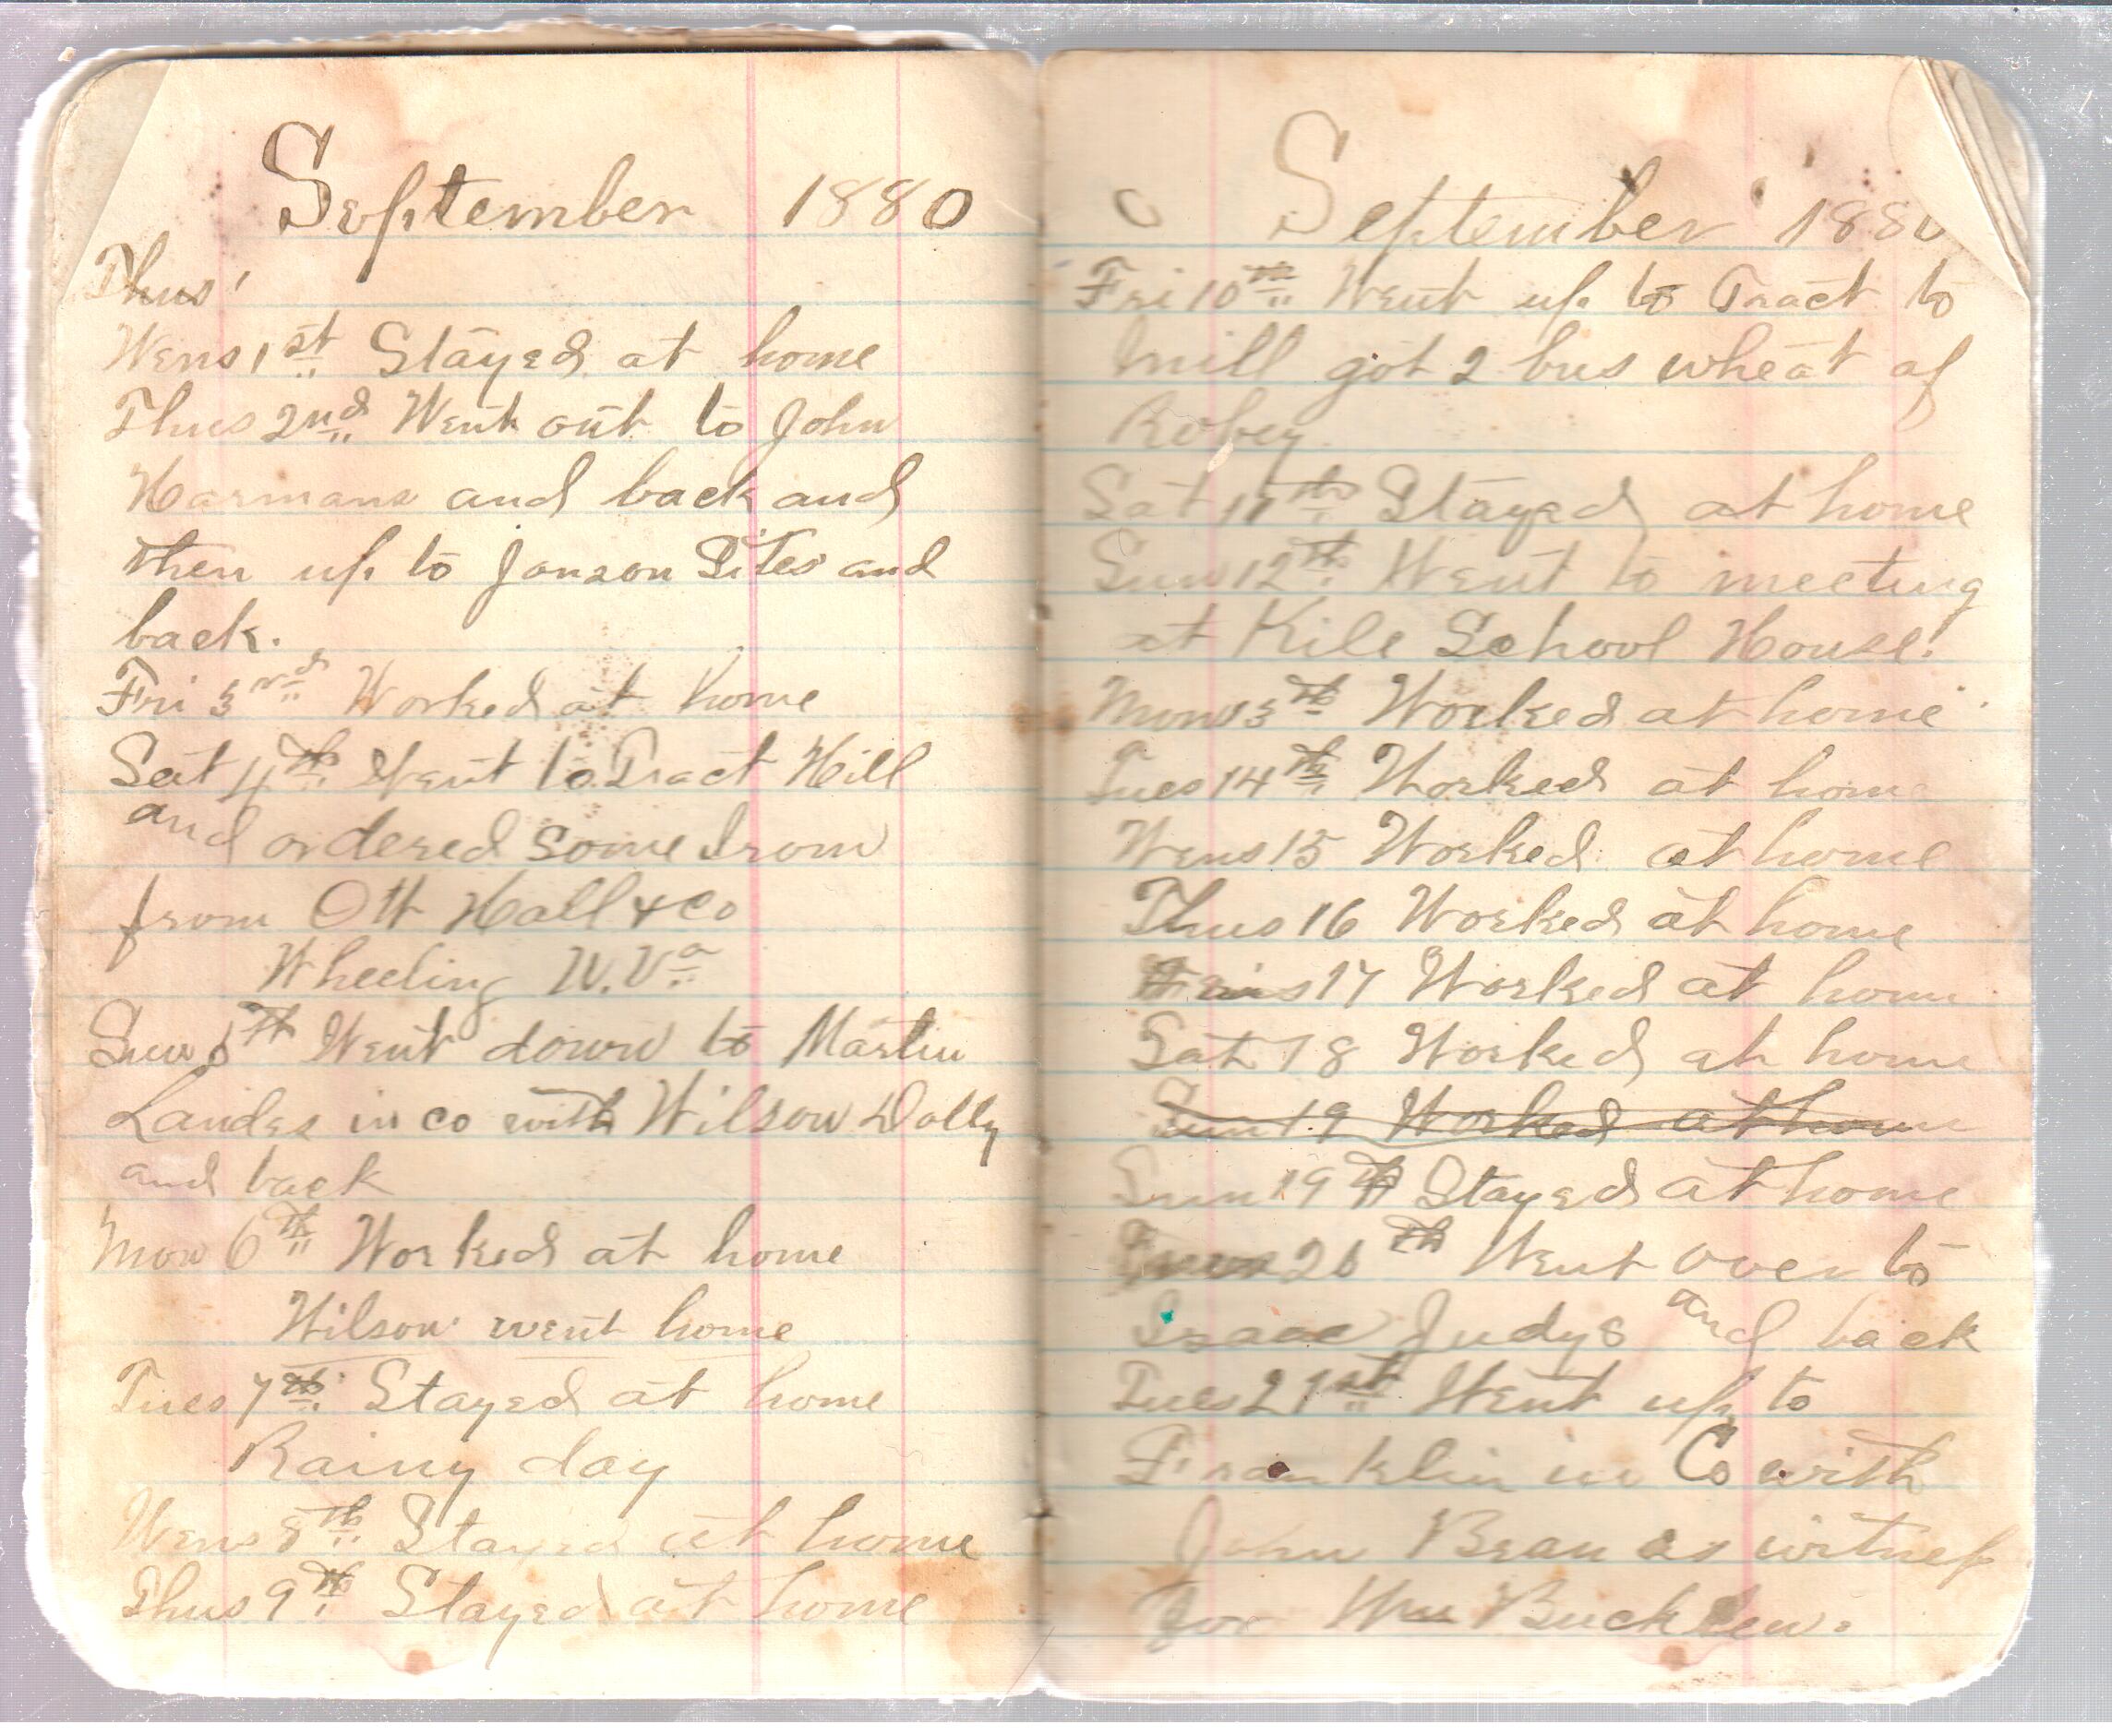 September 1880
Thus'
Wens 1st Stayed at home
Thus 2nd Went out to John
Harmans and back and
then up to Jonson Sites and
back.
Fri 3rd Worked at home
Sat 4th Went to Tract Hill
and ordered some Irom
from Ott Hall & Co
Wheeling W.Va
Sun 5th Went down to Martin
Landes in co with Wilson Dolly
and back
Mon 6th Worked at home
Wilson went home
Tues 7th Stayed at home
Rainy day
Wens 8th Stayed at home
Thus 9th Stayed at home
September 1880
Fri 10th Went up to Tract to
mill got 2 bus wheat of
Robey
Sat 11th Stayed at home
Sun 12th Went to meeting
at Kile School House.
Mon 13th Worked at home
Tues 14th Worked at home
Wens 15 Worked at home
Thus 16 Worked at home
17 Worked at home
Sat 18 Worked at home
Sun 19 Worked at home
Sun 19th Stayed at home
20th Went over to
Isaac Judys and back
Tues 21st Went up to
Franklin in Co with
John Bean as witness
for Wm Bucklew.